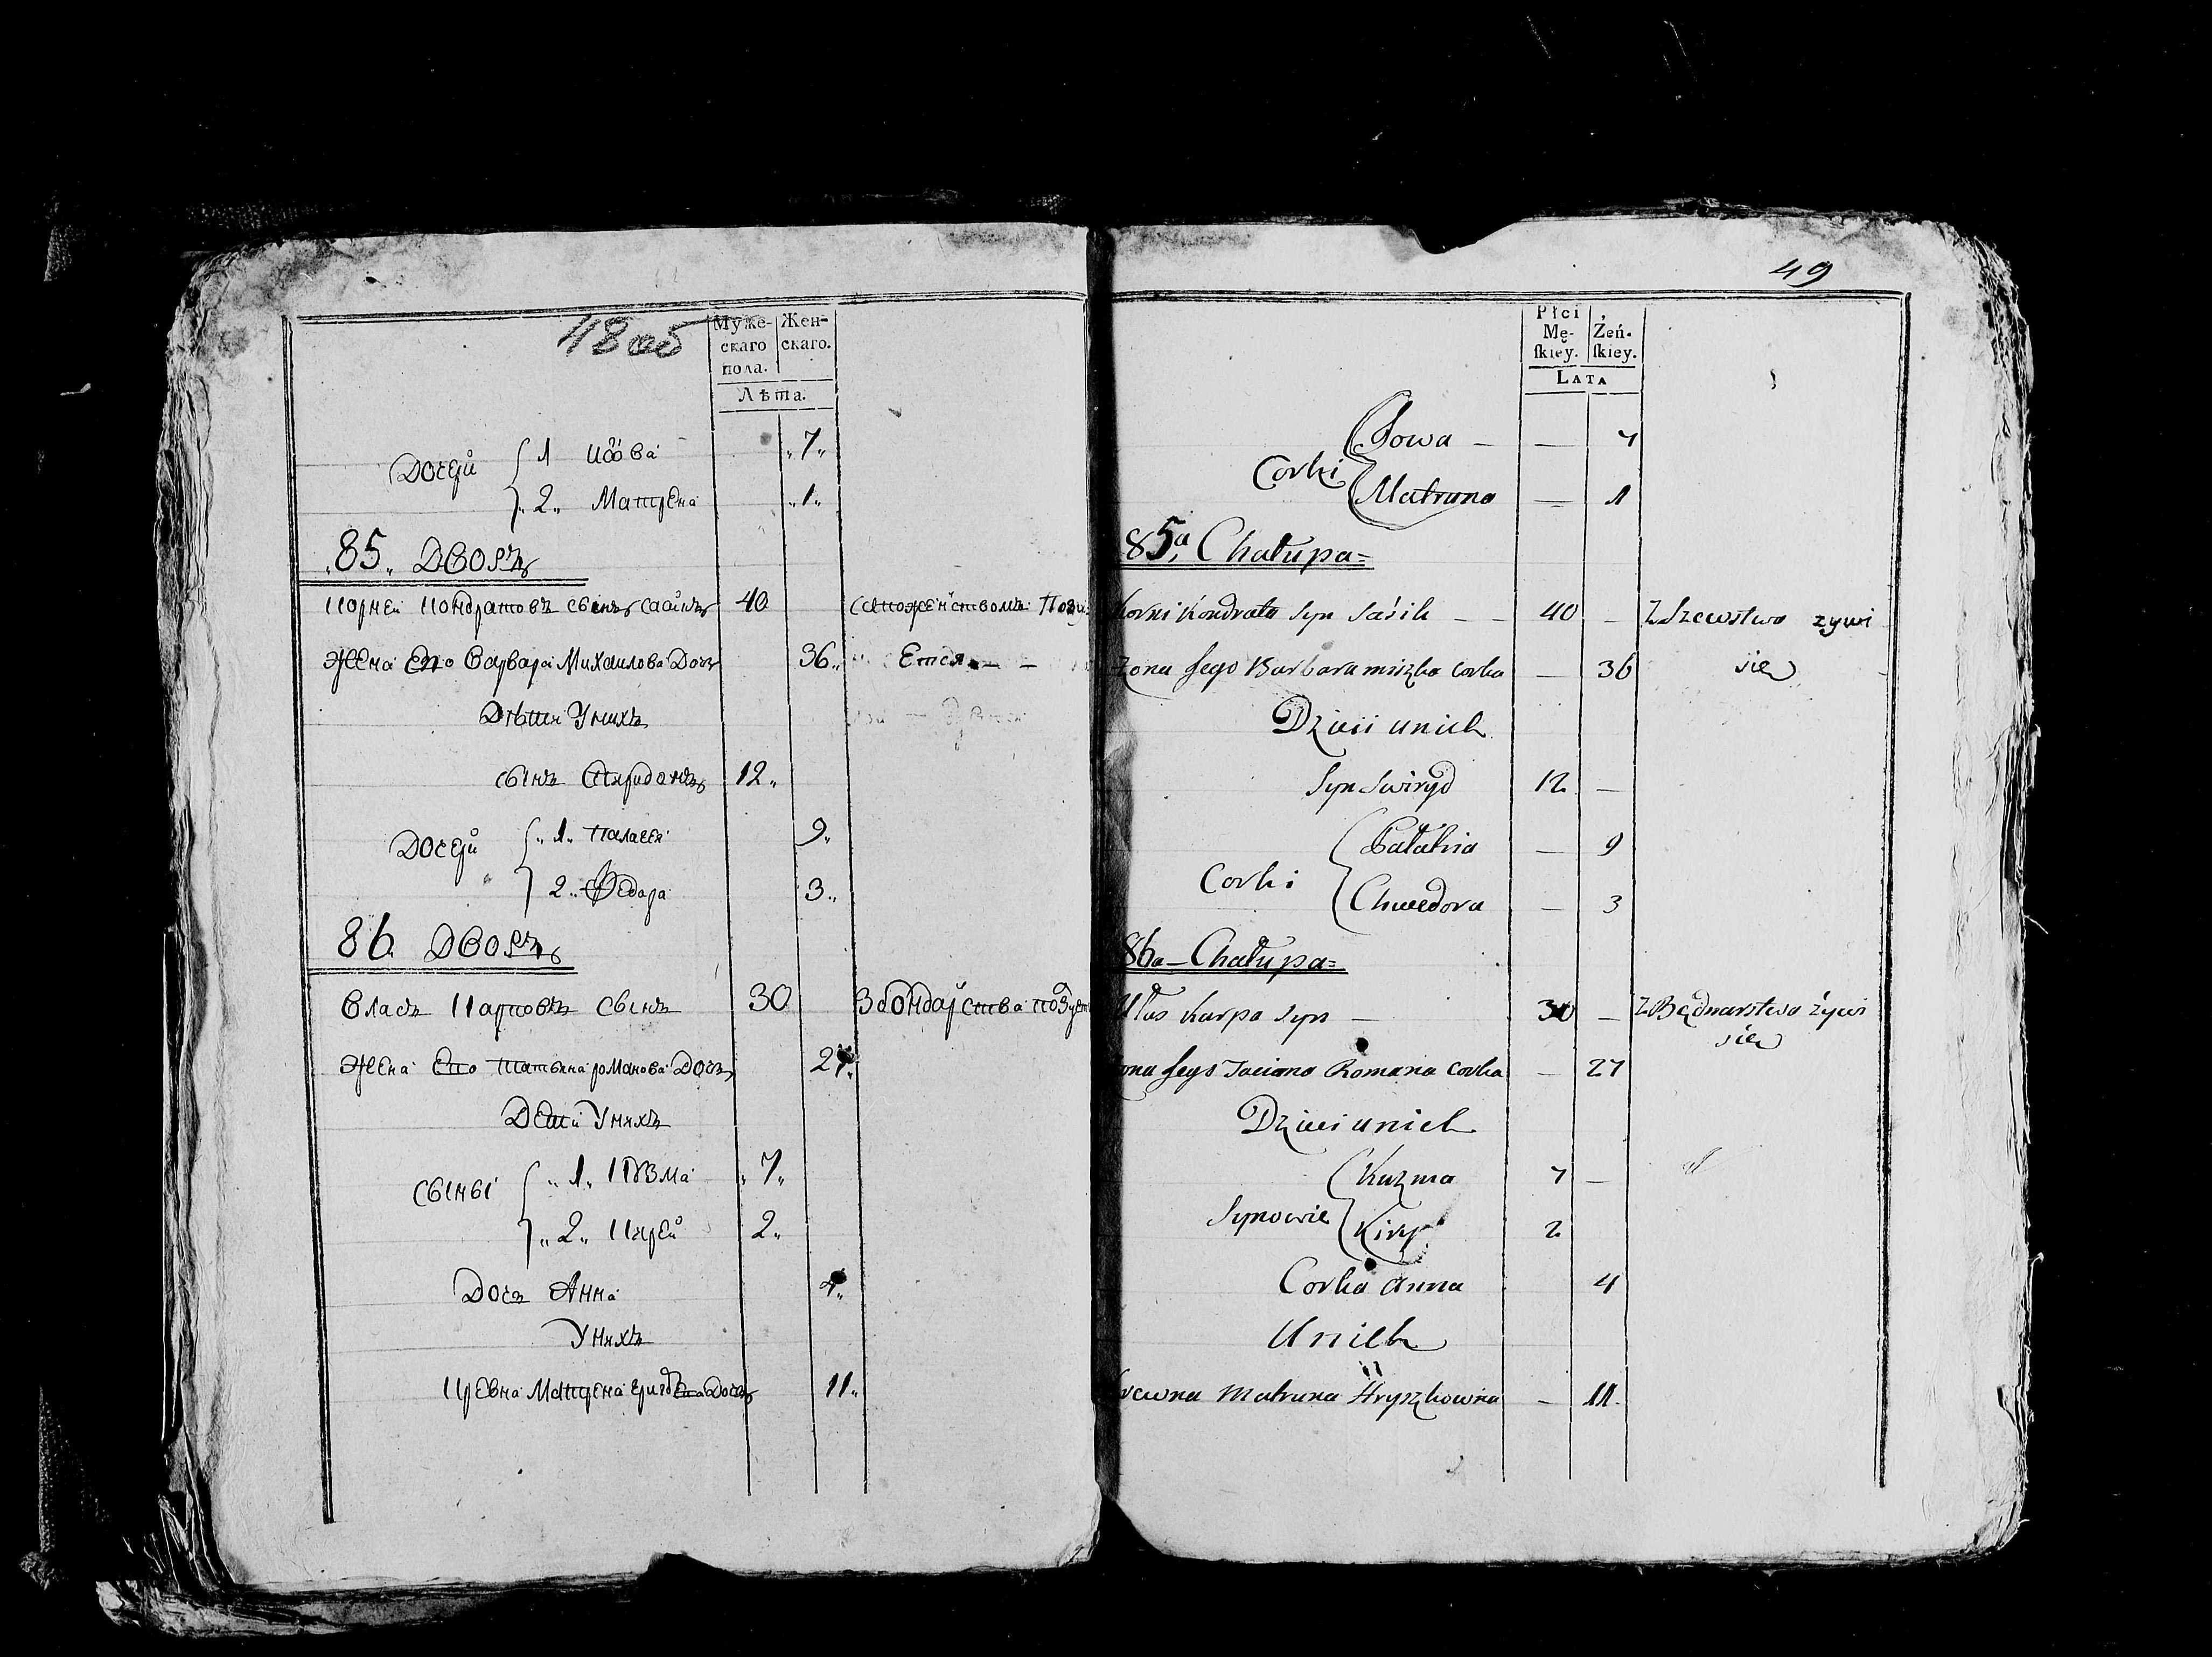 48 об
Муже-
скаго
пола.
Жен-
скаго.
Лѣта.
Дочери 1 Иова „7„
„2„ Матрена „1„
„85„ Дворъ
Корней Кондратовъ сынъ Саснъ 40 Сапоженствомъ Позы
Жена Его Варвара Михаилова Дочь 36„ Ется
Дѣти Унихъ
сынъ Спиридонъ 12„
Дочери „1„ Палагея 9„
2„ Федора 3„
86 Дворъ
Власъ Карповъ сынъ 30 Збондарства позует
Жена Его Татьяна романова Дочь 27„
Дети Унихъ
сыны „1„ Кузма „7„
„2„ Кирей 2„
Дочь Анна 4„
Унихъ
Кревна Матрена Дочь 11„
49
Płci
Mę-
skiey.
Żeń-
skiey.
LATA
Corki Jowa — — 7
Matruna — 1
85a, Chałupa=
Korni Kondrata Syn Saśik — — 40 — Z Szewstwa zywi
Żona Jego Barbara miszka Corka — 36 się
Dzieci unich
Syn Swiryd 12 —
Corki Pałahia — 9
Chwedora — 3
86a — Chałupa=
Ułas Karpa Syn — 30 — Z Będnarstwa żywi
się
ona Jego Taciana Romana Corka — 27
Dzieci unich
Synowie Kuzma 7 —
Kiry 2
Corka Anna 4
Unich
krewna Matruna Hryszkowna — 11